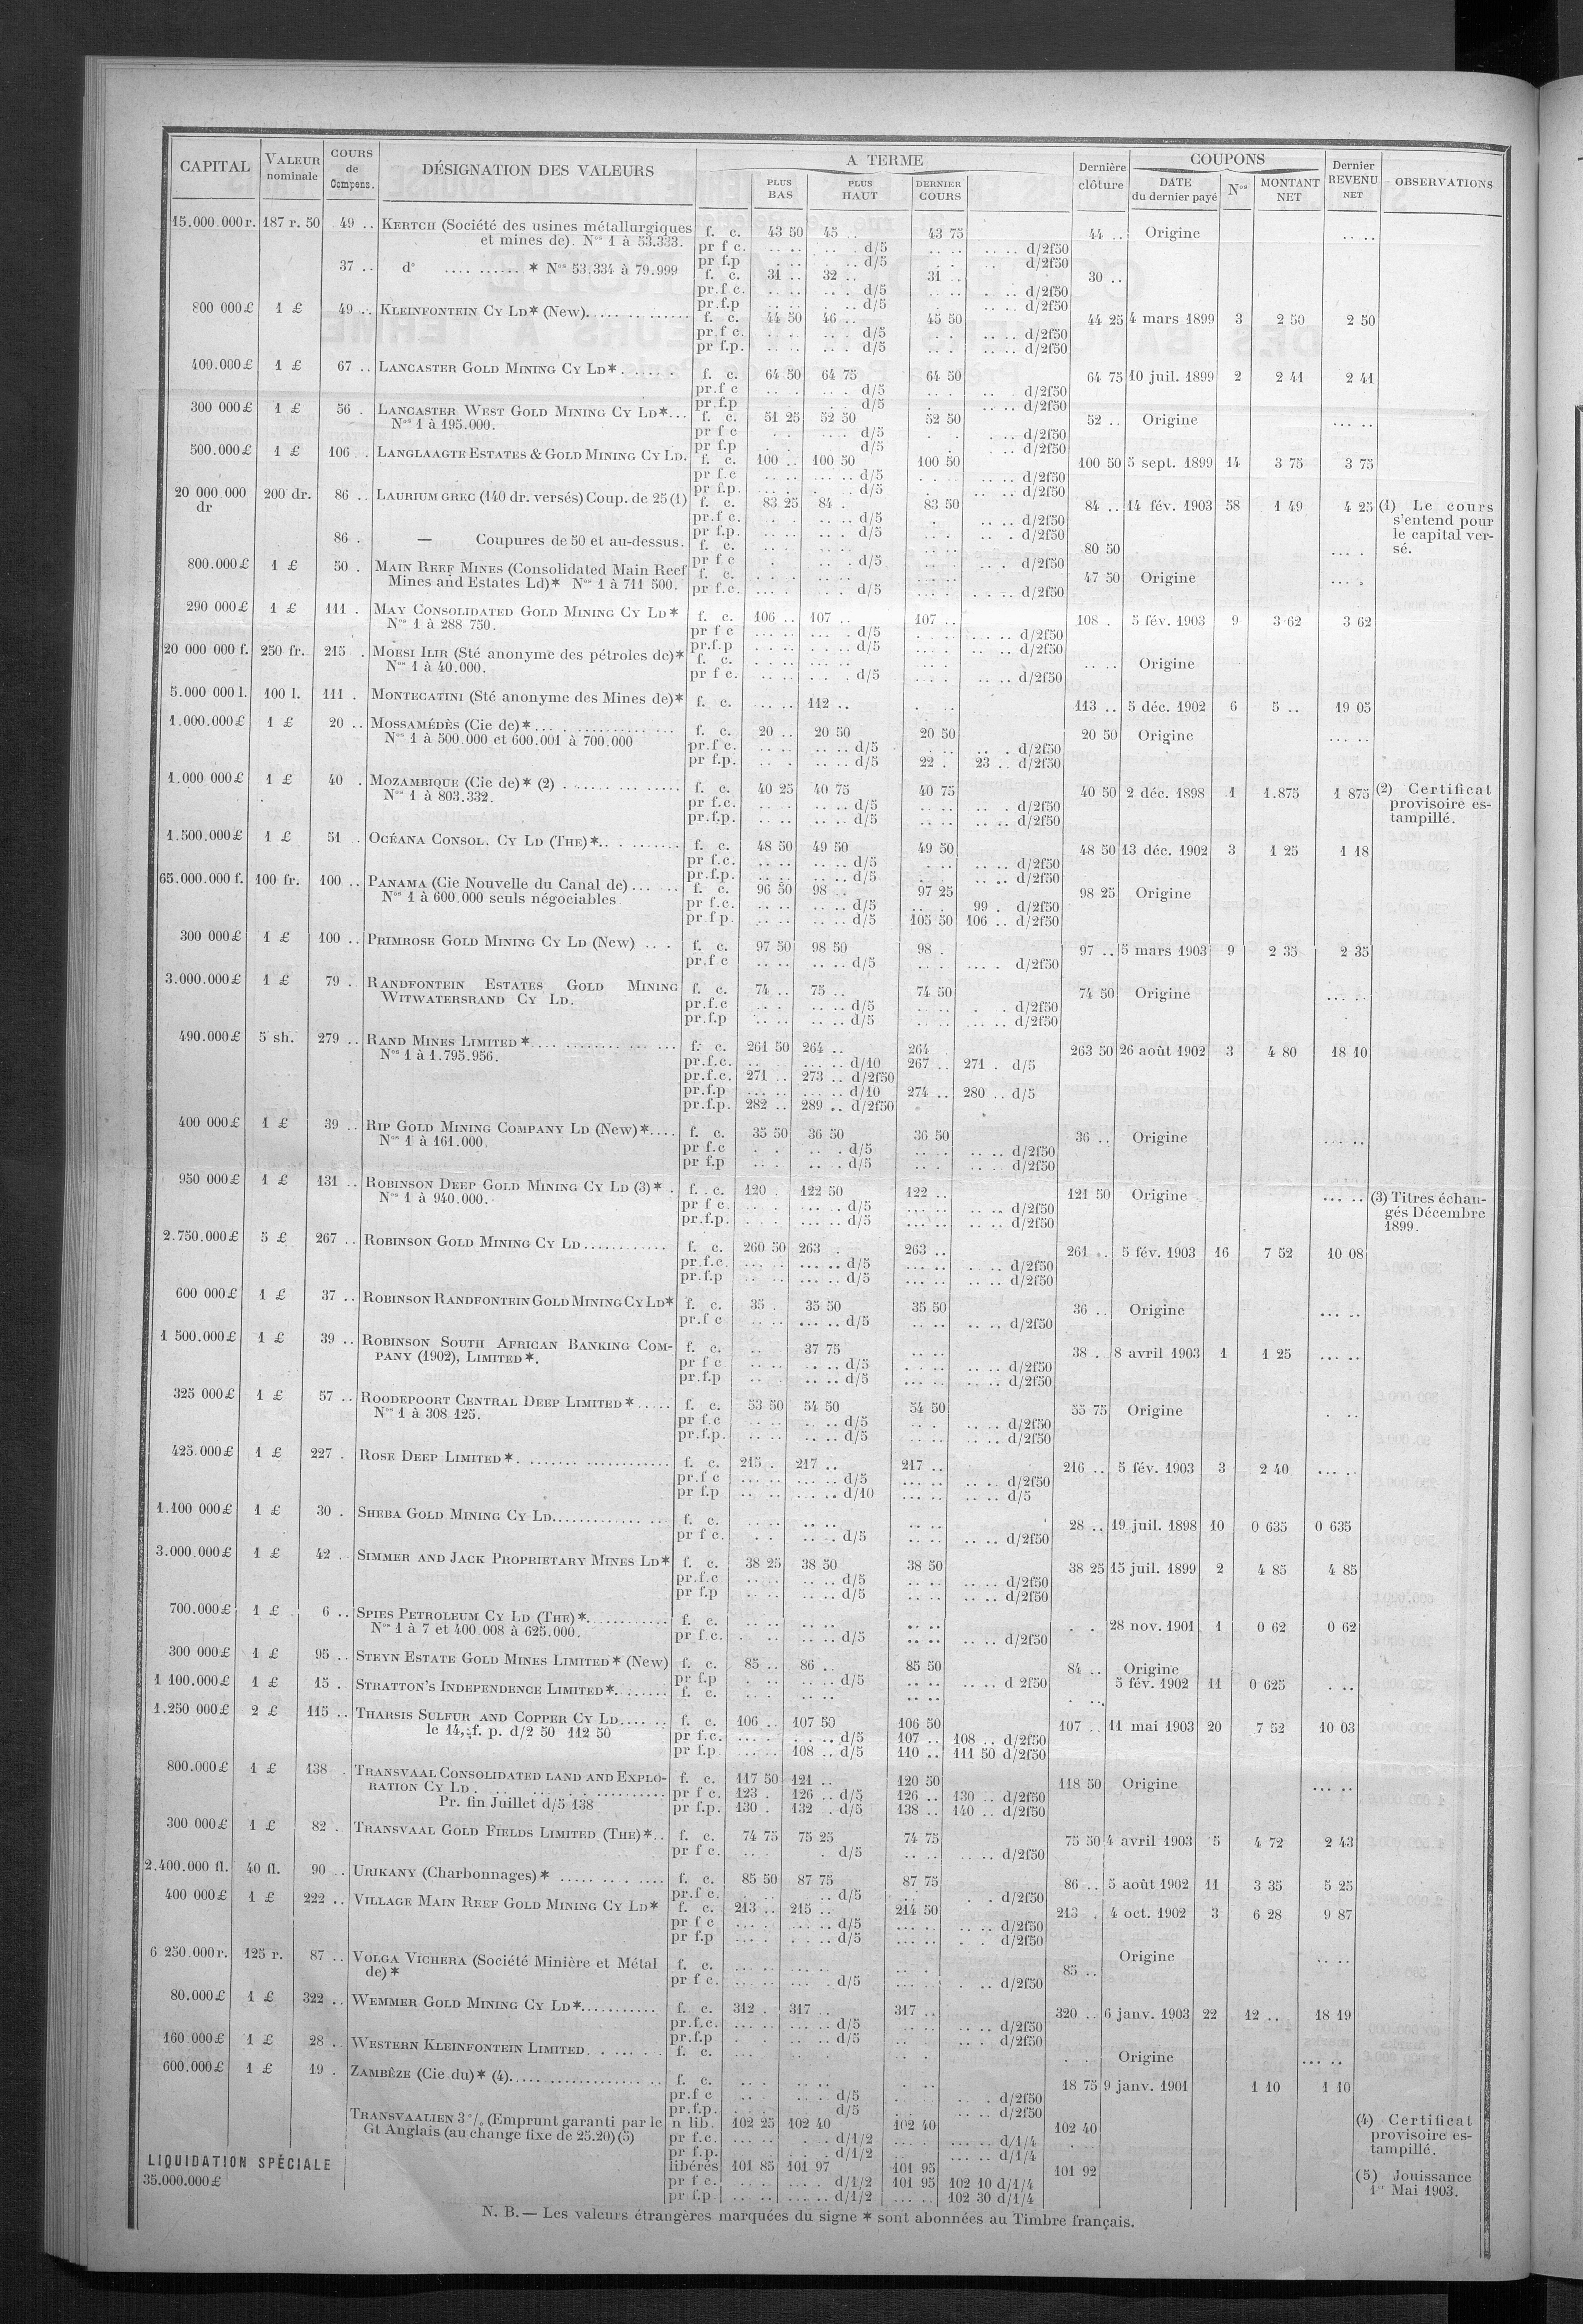 CAPITAL | VALEUR nominale | COURS de Compens. | DÉSIGNATION DES VALEURS | A TERME | PLUS BAS | PLUS HAUT | DERNIER COURS | Dernière clôture | COUPONS | DATE du dernier payé | Nos | MONTANT NET | Dernier REVENU NET | OBSERVATIONS
15.000.000 r. 187 r. 50 49 .. KERTCH (Société des usines métallurgiques f. c. 43 50 45 .. 43 75 44 .. Origine .. ..
et mines de). Nos 1 à 53.333. pr f c. .. .. .. . d/5 .. .. .. .. d/2f50
pr f.p . .. .. .. d/5 . . .. d/2f50
37 .. d° .... ...... * Nos 53.334 à 79.999 f. c. 31 .. 32 .. 31 .. 30 ..
pr.f c. .. .. .. . d/5 .. .. . .. d/2f50
pr.f.p .. .. .. d/5 .. .. d/2f50
800 000 £ 1 £ 49 .. KLEINFONTEIN CY LD* (New). f. c. 44 50 46 .. 45 50 44 25 4 mars 1899 3 2 50 2 50
pr.f c. .. . .. . d/5 . . .. .. d/2f50
pr f.p. .. .. .. . d/5 .. . .. .. d/2f50
400.000 £ 1 £ 67 .. LANCASTER GOLD MINING CY LD* f. c. 64 50 64 75 64 50 64 75 10 juil. 1899 2 2 41 2 41
pr.f c .. . . d/5 . .. .. d/2f50
pr.f.p . .. d/5 . .. .. d/2f50
300 000 £ 1 £ 56 . LANCASTER WEST GOLD MINING CY LD*... f. c. 51 25 52 50 52 50 52 .. Origine ... ..
Nos 1 à 195.000. pr f c . . .. .. d/5 . . . .. d/2f50
pr f.p . . .. d/5 . . .. d/2f50
500.000 £ 1 £ 106 . LANGLAAGTE ESTATES & GOLD MINING CY LD. f. c. 100 .. 100 50 100 50 100 50 5 sept. 1899 14 3 75 3 75
pr f.c .. .. .. .. d/5 .. .. .. .. d/2f50
pr f.p. .. . . . d/5 . .. .. d/2f50
20 000 000 dr 200 dr. 86 .. LAURIUM GREC (140 dr. versés) Coup. de 25 (1) f. c. 83 25 84 . 83 50 84 .. 14 fév. 1903 58 1 49 4 25 (1) Le cours s'entend pour le capital versé.
pr.f c. . .. .. d/5 . .. .. d/2f50
pr f.p. .. .. .. . d/5 .. . .. . d/2f50
86 . — Coupures de 50 et au-dessus. f. c. .. .. .. .. .. .. 80 50 ... .
pr f c . . .. d/5 .. . .. . d/2f50
800.000 £ 1 £ 50 . MAIN REEF MINES (Consolidated Main Reef f. c. . .. .. .. .. .. 47 50 Origine ... .
Mines and Estates Ld)* Nos 1 à 711 500. pr f.c. ... . . . d/5 ... . . .. .. d/2f50
290 000 £ 1 £ 111 . MAY CONSOLIDATED GOLD MINING CY LD* f. c. 106 .. 107 .. 107 .. 108 . 5 fév. 1903 9 3 62 3 62
Nos 1 à 288 750. pr f c ... .. ... . d/5 . .. .. .. d/2f50
pr.f.p .. .. .. .. d/5 ... . .. .. d/2f50
20 000 000 f. 250 fr. 215 . MOESI ILIR (Sté anonyme des pétroles de)* f. c. ... .. .. .. .. .. .. .. Origine
Nos 1 à 40.000. pr f c. .. .. .. . d/5 ... . .. .. d/2f50
5.000 000 l. 100 l. 111 . MONTECATINI (Sté anonyme des Mines de)* f. c. ... .. 112 .. . .. 113 .. 5 déc. 1902 6 5 .. 19 05
1.000.000 £ 1 £ 20 .. MOSSAMÉDÈS (Cie de)* f. c. 20 .. 20 50 20 50 20 50 Origine ... ..
Nos 1 à 500.000 et 600.001 à 700.000 pr.f c. .. .. .. .. d/5 . .. .. . d/2f50
pr f.p. .. . .. .. d/5 22 . 23 .. d/2f50
1.000 000 £ 1 £ 40 . MOZAMBIQUE (Cie de)* (2) f. c. 40 25 40 75 40 75 40 50 2 déc. 1898 1 1.875 1 875 (2) Certificat provisoire estampillé.
Nos 1 à 803.332. pr f.c. .. .. .. .. d/5 .. .. .. . d/2f50
pr.f.p. .. .. .. .. d/5 .. .. .. .. d/2f50
1.500.000 £ 1 £ 51 .. OCÉANA CONSOL. CY LD (THE)* f. c. 48 50 49 50 49 50 48 50 13 déc. 1902 3 1 25 1 18
pr f.c. .. .. .. .. d/5 . .. .. .. d/2f50
pr.f.p. .. .. .. .. d/5 .. .. .. d/2f50
65.000.000 f. 100 fr. 100 .. PANAMA (Cie Nouvelle du Canal de) f. c. 96 50 98 .. 97 25 98 25 Origine
Nos 1 à 600.000 seuls négociables pr f.c. .. .. .. .. d/5 .. . 99 . d/2f50
pr.f p. .. .. .. .. d/5 105 50 106 .. d/2f50
300 000 £ 1 £ 100 .. PRIMROSE GOLD MINING CY LD (New) f. c. 97 50 98 50 98 . 97 .. 5 mars 1903 9 2 35 2 35
pr.f c .. .. .. .. d/5 .. . ... . d/2f50
3.000.000 £ 1 £ 79 . RANDFONTEIN ESTATES GOLD MINING f. c. 74 .. 75 .. 74 50 74 50 Origine ... ..
WITWATERSRAND CY LD. pr.f.c . .. .. .. d/5 .. .. . . d/2f50
pr.f.p .. .. .. .. d/5 .. . .. .. d/2f50
490.000 £ 5 sh. 279 .. RAND MINES LIMITED* f. c. 261 50 264 .. 264 263 50 26 août 1902 3 4 80 18 10
Nos 1 à 1.795.956. pr.f.c. .. ... .. d/10 267 .. 271 . d/5
pr.f.c. 271 .. 273 .. d/2f50
pr.f.p ... .. ... .. d/10 274 .. 280 .. d/5
pr.f.p. 282 .. 289 .. d/2f50
400 000 £ 1 £ 39 .. RIP GOLD MINING COMPANY LD (New)*.... f. c. 35 50 36 50 36 50 36 .. Origine ... ..
Nos 1 à 161.000. pr f.c . . .. . d/5 .. .. .. .. d/2f50
pr f.p .. . .. .. d/5 .. . .. .. d/2f50
950 000 £ 1 £ 131 .. ROBINSON DEEP GOLD MINING CY LD (3)* . f. c. 120 . 122 50 122 .. 121 50 Origine ... .. (3) Titres échangés Décembre 1899.
Nos 1 à 940.000. pr f c. .. .. ... .. d/5 ... .. .. .. d/2f50
pr.f.p. . . ... .. d/5 ... .. .. .. d/2f50
2.750.000 £ 5 £ 267 .. ROBINSON GOLD MINING CY LD f. c. 260 50 263 . 263 .. 261 .. 5 fév. 1903 16 7 52 10 08
pr.f.c. ... . ... .. d/5 ... .. . .. d/2f50
pr.f.p .. .. ... .. d/5 ... .. .. .. d/2f50
600 000 £ 1 £ 37 .. ROBINSON RANDFONTEIN GOLD MINING CY LD* f. c. 35 . 35 50 35 50 36 .. Origine ... ..
pr.f c .. .. ... .. d/5 .. .. .. .. d/2f50
1 500.000 £ 1 £ 39 .. ROBINSON SOUTH AFRICAN BANKING COM- f. c. .. 37 75 .. .. 38 . 8 avril 1903 1 1 25 ... ..
PANY (1902), LIMITED*. pr f c .. .. .. .. d/5 .. .. .. .. d/2f50
pr.f.p .. . .. .. d/5 ... .. .. .. d/2f50
325 000 £ 1 £ 57 .. ROODEPOORT CENTRAL DEEP LIMITED* f. c. 53 50 54 50 54 50 55 75 Origine . ..
Nos 1 à 308 125. pr f.c .. .. .. .. d/5 .. . .. .. d/2f50
pr.f.p. .. .. .. .. d/5 .. .. .. .. d/2f50
425.000 £ 1 £ 227 . ROSE DEEP LIMITED* f. c. 215 . 217 .. 217 .. 216 .. 5 fév. 1903 3 2 40 ... ..
pr.f c ... .. ... .. d/5 ... .. .. . d/2f50
pr f.p .. .. ... .. d/10 ... .. .. .. d/5
1.100 000 £ 1 £ 30 . SHEBA GOLD MINING CY LD f. c. .. .. .. .. .. .. 28 .. 19 juil. 1898 10 0 635 0 635
pr f c. . . .. . d/5 .. .. .. .. d/2f50
3.000.000 £ 1 £ 42 . SIMMER AND JACK PROPRIETARY MINES LD* f. c. 38 25 38 50 38 50 38 25 15 juil. 1899 2 4 85 4 85
pr.f.c .. .. .. .. d/5 .. .. .. .. d/2f50
pr f.p .. .. .. .. d/5 .. .. .. .. d/2f50
700.000 £ 1 £ 6 .. SPIES PETROLEUM CY LD (THE)* f. c. .. .. .. .. .. .. . . 28 nov. 1901 1 0 62 0 62
Nos 1 à 7 et 400.008 à 625.000. pr f.c. . .. .. .. d/5 .. .. .. .. d/2f50
300 000 £ 1 £ 95 .. STEYN ESTATE GOLD MINES LIMITED* (New) f. c. 85 .. 86 .. 85 50 84 .. Origine
pr f.p . .. .. .. d/5 .. .. .. .. d 2f50
1 100.000 £ 1 £ 15 . STRATTON'S INDEPENDENCE LIMITED* f. c. .. . .. .. .. .. . .. 5 fév. 1902 11 0 625 . ..
1.250 000 £ 2 £ 115 .. THARSIS SULFUR AND COPPER CY LD f. c. 106 .. 107 50 106 50 107 .. 11 mai 1903 20 7 52 10 03
le 14, f. p. d/2 50 112 50 pr f.c. ... .. . .. d/5 107 .. 108 .. d/2f50
pr f.p ... .. 108 .. d/5 110 .. 111 50 d/2f50
800.000 £ 1 £ 138 . TRANSVAAL CONSOLIDATED LAND AND EXPLO- f. c. 117 50 121 .. 120 50 118 50 Origine ... ..
RATION CY LD pr f c. 123 . 126 .. d/5 126 .. 130 .. d/2f50
Pr. fin Juillet d/5 138 pr f.p. 130 . 132 . d/5 138 .. 140 .. d/2f50
300 000 £ 1 £ 82 . TRANSVAAL GOLD FIELDS LIMITED (THE)*.. f. c. 74 75 75 25 74 75 75 50 4 avril 1903 5 4 72 2 43
pr f c. .. . . d/5 .. .. .. .. d/2f50
2.400.000 fl. 40 fl. 90 .. URIKANY (Charbonnages)* f. c. 85 50 87 75 87 75 86 .. 5 août 1902 11 3 35 5 25
pr.f c. . .. .. d/5 .. . . . d/2f50
400 000 £ 1 £ 222 .. VILLAGE MAIN REEF GOLD MINING CY LD* f. c. 213 .. 215 .. 214 50 213 . 4 oct. 1902 3 6 28 9 87
pr f c ... . ... .. d/5 ... .. .. .. d/2f50
pr f.p ... . . .. d/5 ... .. . . d/2f50
6 250.000 r. 125 r. 87 .. VOLGA VICHERA (Société Minière et Métal f. c. ... .. .. .. .. . 85 .. Origine .. ..
de)* pr f c. ... .. ... . d/5 ... .. . .. d/2f50
80.000 £ 1 £ 322 .. WEMMER GOLD MINING CY LD* f. c. 312 . 317 .. 317 .. 320 .. 6 janv. 1903 22 12 .. 18 19
pr.f.c. ... .. ... .. d/5 .. .. .. .. d/2f50
pr.f.p . . .. .. d/5 .. .. . d/2f50
160.000 £ 1 £ 28 .. WESTERN KLEINFONTEIN LIMITED f. c. ... .. .. . . . . Origine ... ..
600.000 £ 1 £ 19 . ZAMBÈZE (Cie du)* (4) f. c. .. . .. .. . .. 18 75 9 janv. 1901 1 10 1 10
pr.f c .. . .. .. d/5 .. .. . . d/2f50
pr.f.p. .. . d/5 .. .. .. .. d/2f50
TRANSVAALIEN 3 % (Emprunt garanti par le n lib. 102 25 102 40 102 40 102 40 (4) Certificat provisoire estampillé.
Gt Anglais (au change fixe de 25.20) (5) pr f.c. ... .. . . d/1/2 ... . ... .. d/1/4
pr f.p. . . d/1/2 ... .. d/1/4
LIQUIDATION SPÉCIALE libérés 101 85 101 97 101 95 101 92
35.000.000 £ pr f c. ... .. ... . d/1/2 101 95 102 10 d/1/4 (5) Jouissance 1er Mai 1903.
pr f.p. ... .. ... .. d/1/2 ... .. 102 30 d/1/4
N. B. — Les valeurs étrangères marquées du signe * sont abonnées au Timbre français.